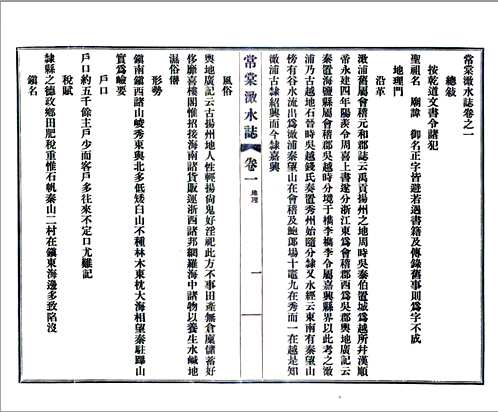 常棠澉水誌卷之一
總敍
按乾道文書令諸犯
聖祖名 廟諱 御名正字皆避若遇書籍及傳錄舊事則爲字不成
地理門
沿革
澉浦舊屬會稽元和郡誌云禹貢揚州之地周時吳泰伯置城爲越所幷漢順
帝永建四年陽羨令周喜上書遂分浙江東爲會稽郡西爲吳郡輿地廣記云
秦置海鹽縣屬會稽郡吳越時分境于檇李檇李今屬嘉興縣界以此考之澉
浦乃古越地石晉時吳越錢氏奏置秀州始隨分隸又水經云東南有秦望山
傍有谷水流出爲澉浦秦望山在會稽及鮑郎場十竈九在秀而一在越是知
澉浦古隸紹興而今隸嘉興
常棠澉水誌 卷一 地理 一
風俗
輿地廣記云古揚州地人性輕揚尚鬼好淫祀此方不事田產無倉廩儲蓄好
侈靡喜樓閣惟招接海南諸貨販運浙西諸邦網羅海中諸物以養生水鹹地
濕俗僭
形勢
鎭南鎭西諸山峻秀東與北多低矮白山不種林木東枕大海相望秦駐蹕山
實爲嶮要
戶口
戶口約五千餘主戶少而客戶多往來不定口尤難記
稅賦
隸縣之德政鄉田肥稅重惟石帆秦山二村在鎭東海邊多致陷沒
鎭名